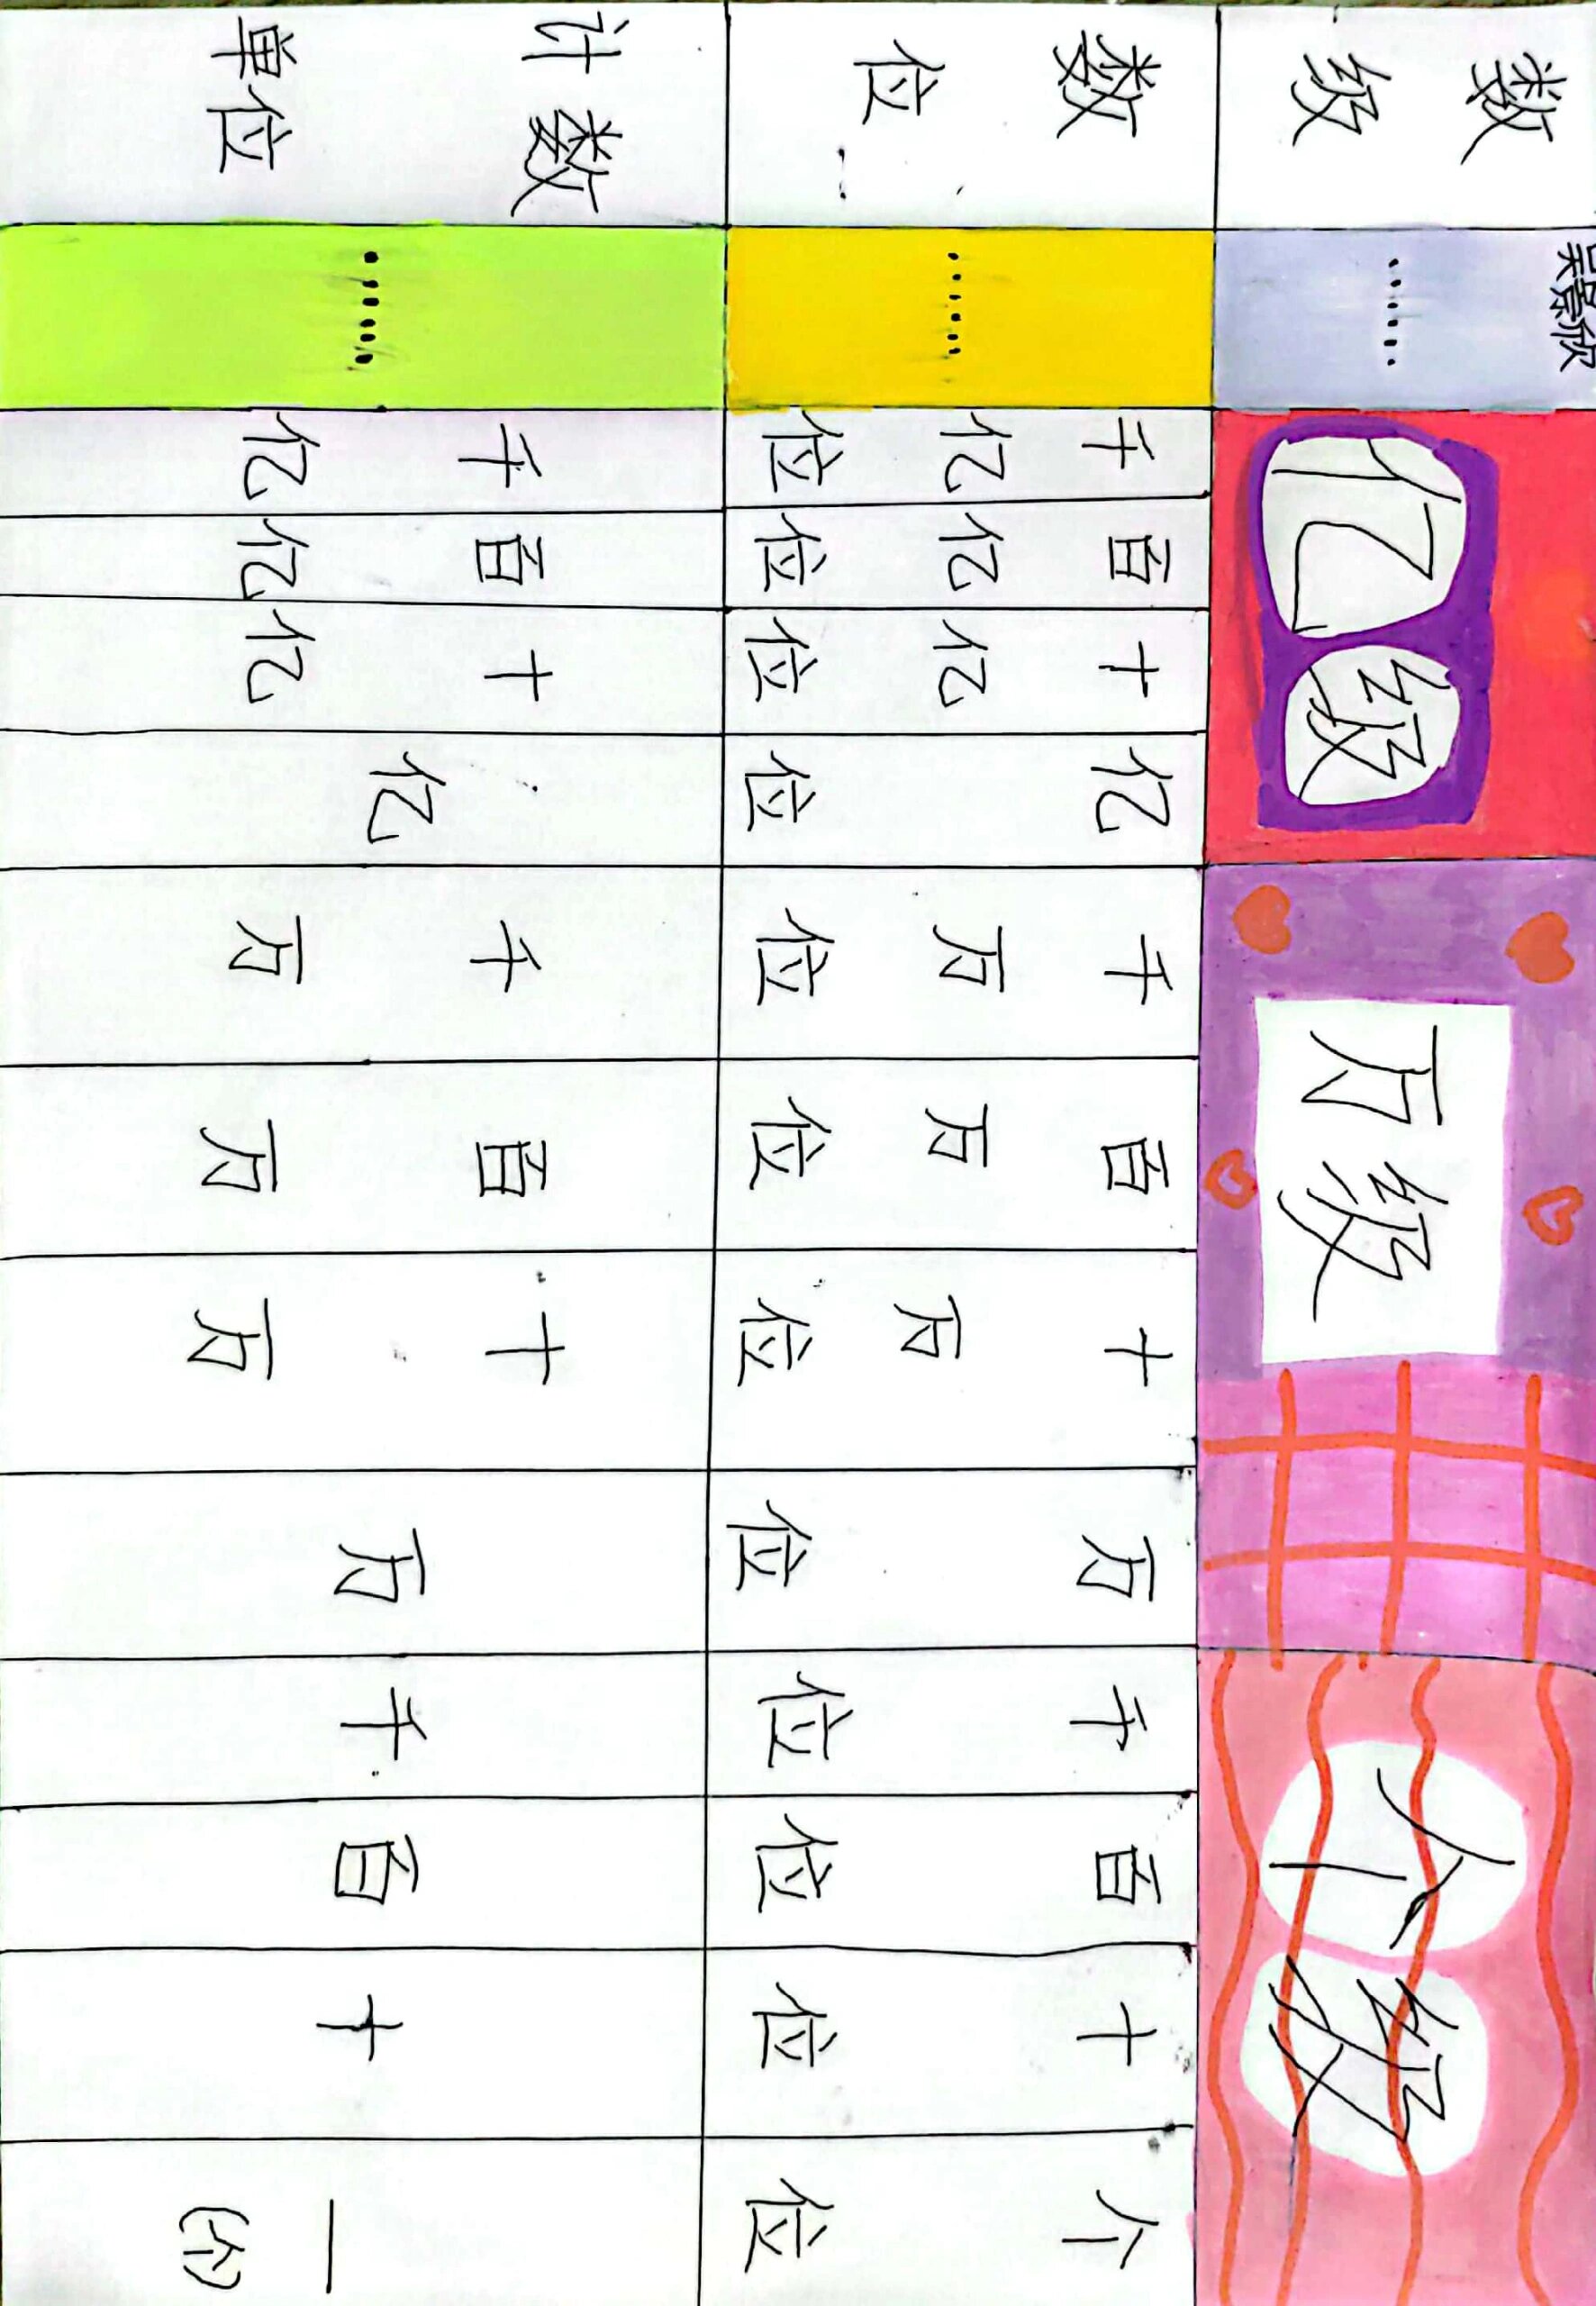 吴景欣
数级 …… 亿级 万级 个级
数位 …… 千亿位 百亿位 十亿位 亿位 千万位 百万位 十万位 万位 千位 百位 十位 个位
计数单位 …… 千亿 百亿 十亿 亿 千万 百万 十万 万 千 百 十 一(个)